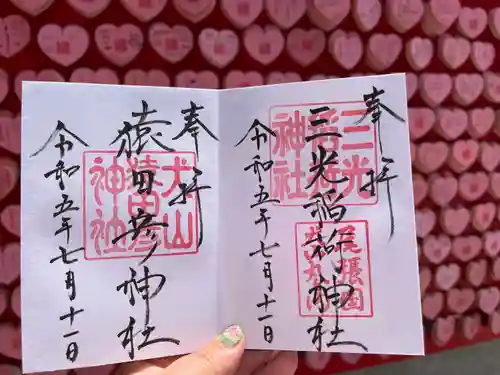 奉拝
三光稲荷神社
令和五年七月十一日
三光
稲荷
神社
尾張国
奉拝
猿田彦神社
令和五年七月十一日
犬山
猿田彦
神社